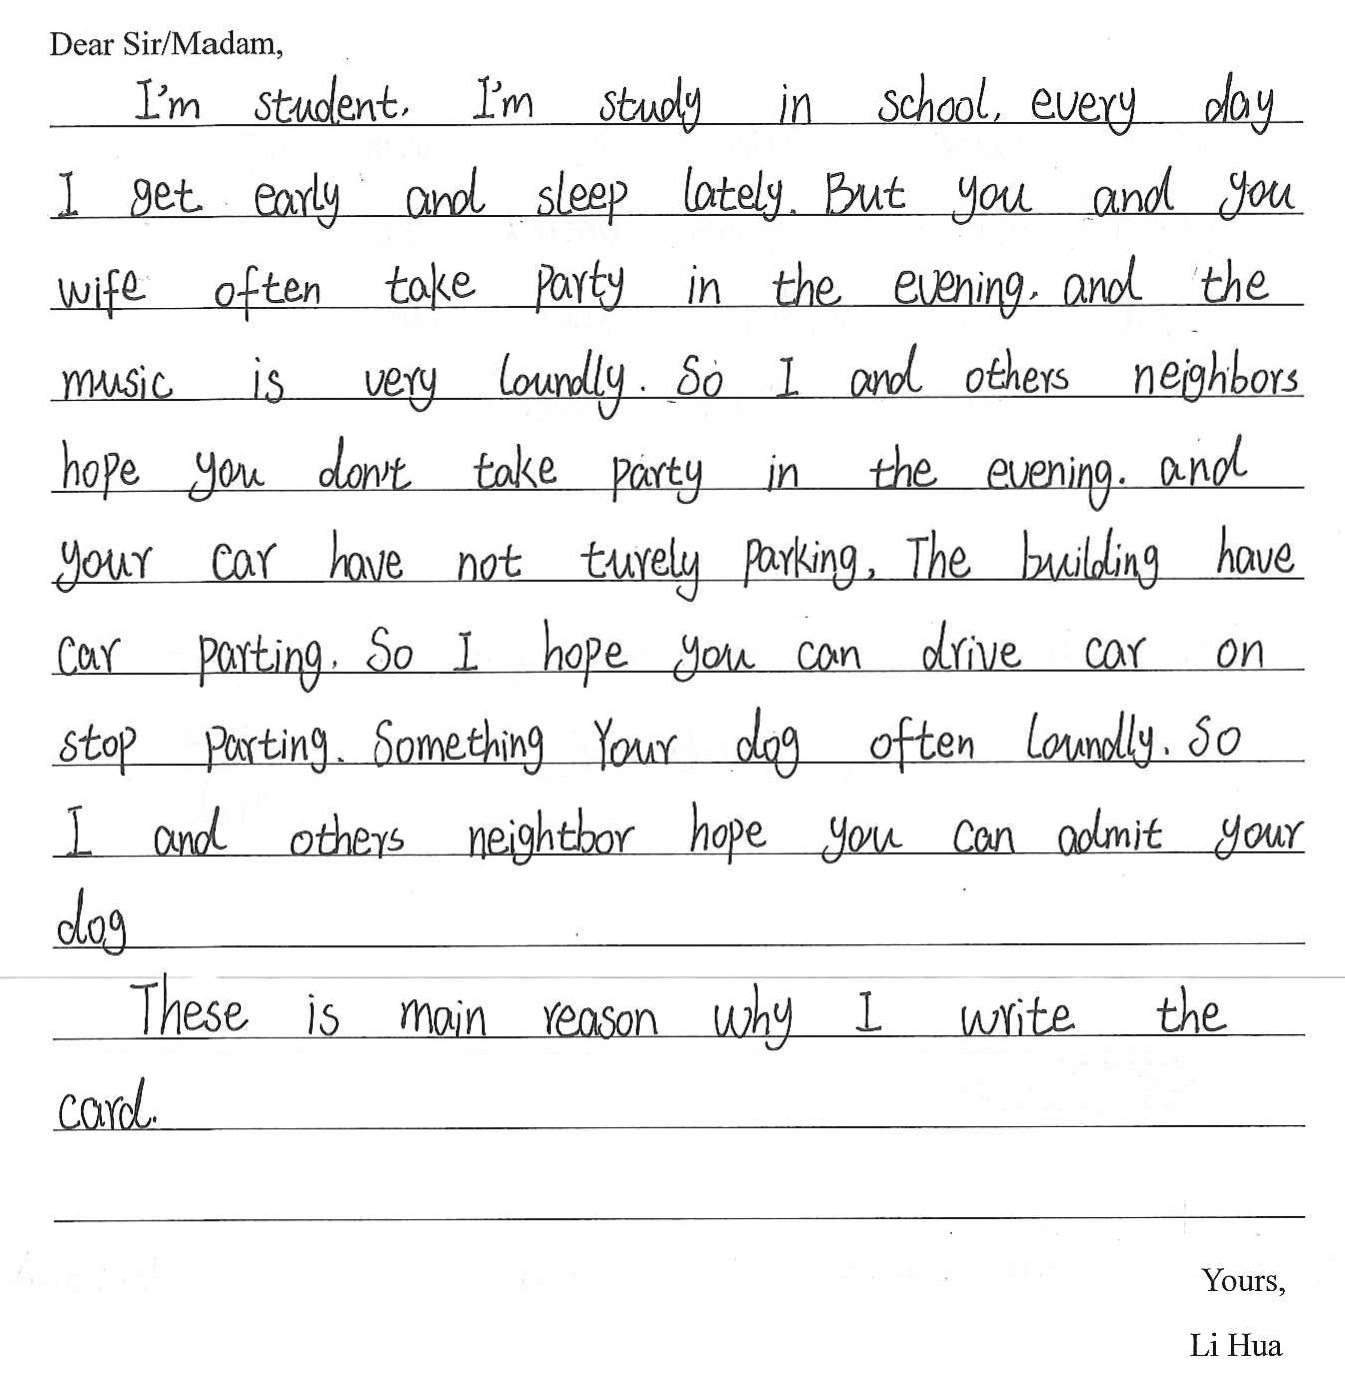 Dear Sir/Madam,
I'm student. I'm study in school, every day
I get early and sleep lately. But you and you
wife often take party in the evening. and the
music is very loundly. So I and others neighbors
hope you don't take party in the evening. and
your car have not turely parking, The building have
car parting. So I hope you can drive car on
stop parting. Something Your dog often loundly. So
I and others neightbor hope you can admit your
dog
These is main reason why I write the
card.
Yours,
Li Hua